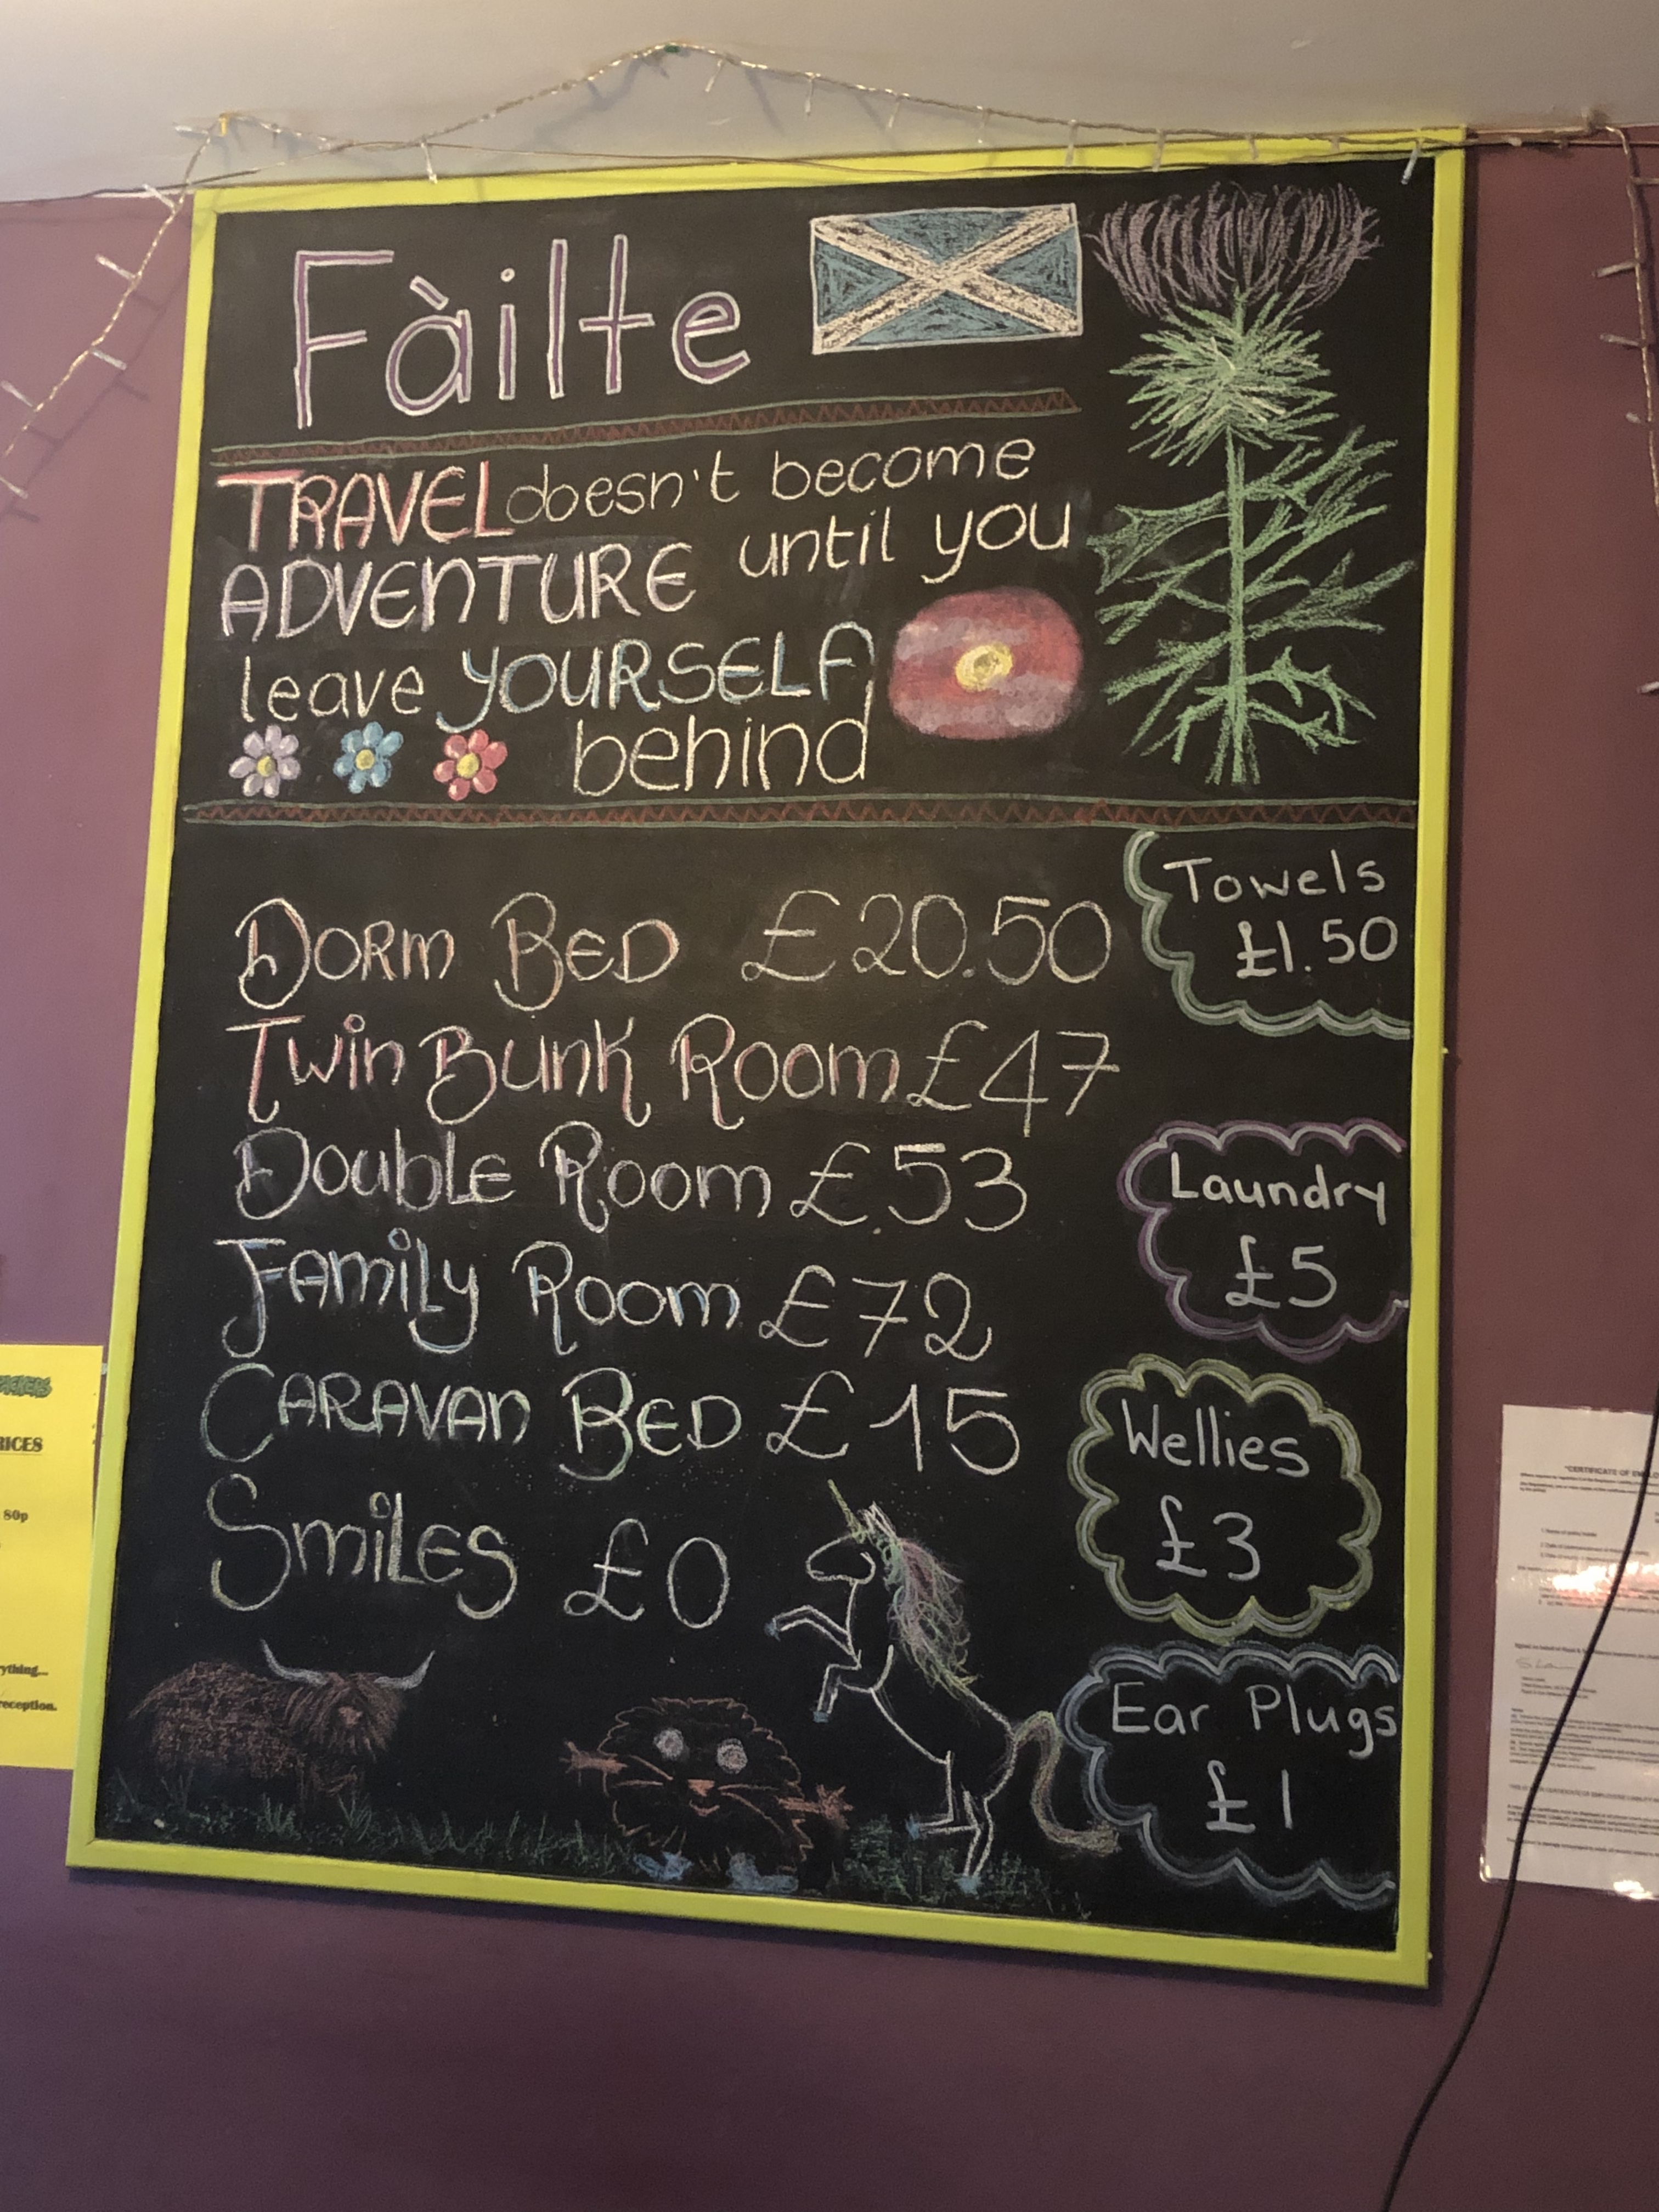 Fàilte
TRAVEL doesn't become
ADVENTURE until you
leave YOURSELF
behind
DORM BED £20.50
Twin BUNK ROOM £47
DOUBLE ROOM £53
FAMILY ROOM £72
CARAVAN BED £15
SMILES £0
Towels
£1.50
Laundry
£5
Wellies
£3
Ear Plugs
£1
80p